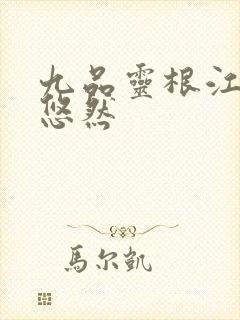 九品靈根江
悠然
馬尔凱